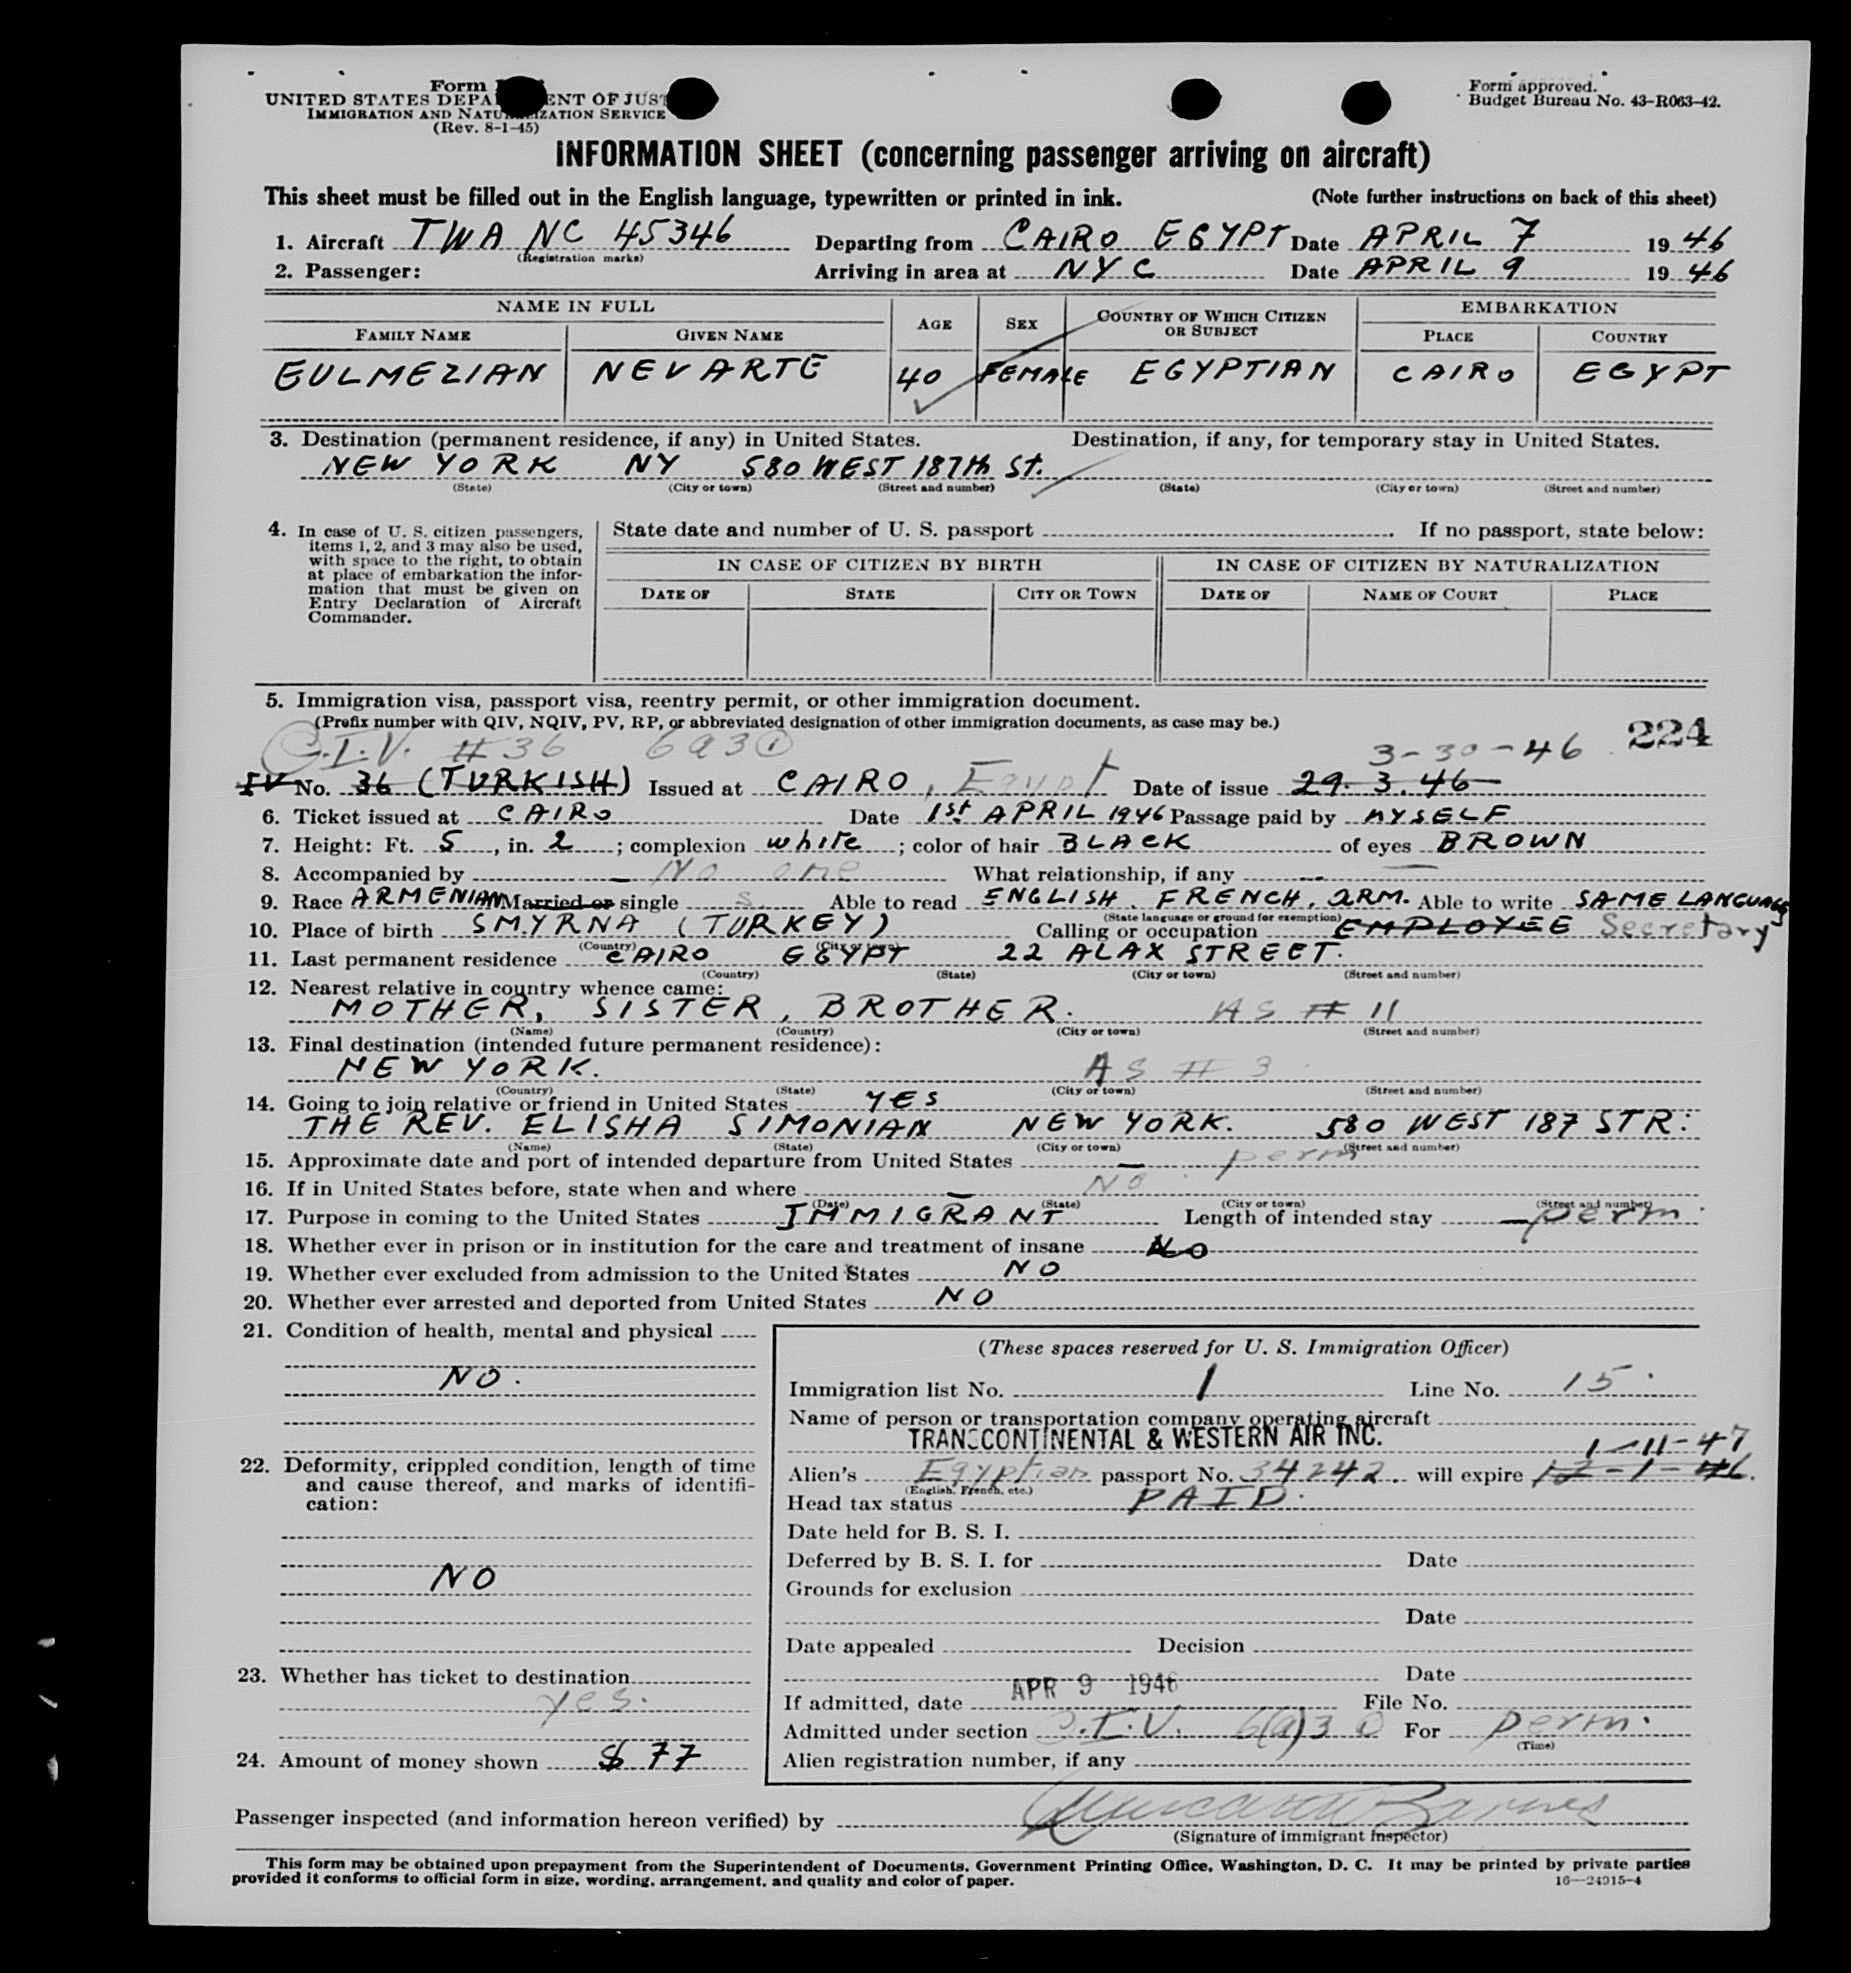 Form
UNITED STATES DEPA ENT OF JUST
IMMIGRATION AND NATURALIZATION SERVICE
(Rev. 8-1-45)
Form approved.
Budget Bureau No. 43-R063-42.
INFORMATION SHEET (concerning passenger arriving on aircraft)
This sheet must be filled out in the English language, typewritten or printed in ink. (Note further instructions on back of this sheet)
1. Aircraft TWA NC 45346 Departing from CAIRO EGYPT Date APRIL 7 1946
(Registration marks)
2. Passenger: Arriving in area at NYC Date APRIL 9 1946
NAME IN FULL AGE SEX COUNTRY OF WHICH CITIZEN OR SUBJECT EMBARKATION
FAMILY NAME GIVEN NAME PLACE COUNTRY
EULMEZIAN NEVARTE 40 FEMALE EGYPTIAN CAIRO EGYPT
3. Destination (permanent residence, if any) in United States. Destination, if any, for temporary stay in United States.
NEW YORK NY 580 WEST 187th St.
(State) (City or town) (Street and number) (State) (City or town) (Street and number)
4. In case of U. S. citizen passengers,
items 1, 2, and 3 may also be used,
with space to the right, to obtain
at place of embarkation the infor-
mation that must be given on
Entry Declaration of Aircraft
Commander.
State date and number of U. S. passport . If no passport, state below:
IN CASE OF CITIZEN BY BIRTH IN CASE OF CITIZEN BY NATURALIZATION
DATE OF STATE CITY OR TOWN DATE OF NAME OF COURT PLACE
5. Immigration visa, passport visa, reentry permit, or other immigration document.
(Prefix number with QIV, NQIV, PV, RP, or abbreviated designation of other immigration documents, as case may be.)
224
Q.I.V. #36 6a3① 3-30-46
IV No. 36 (TURKISH) Issued at CAIRO, Egypt Date of issue 29. 3. 46
6. Ticket issued at CAIRO Date 1st APRIL 1946 Passage paid by MYSELF
7. Height: Ft. 5, in. 2; complexion white; color of hair BLACK of eyes BROWN
8. Accompanied by — No one What relationship, if any —
9. Race ARMENIAN Married or single s. Able to read ENGLISH. FRENCH. ARM. Able to write SAME LANGUAGE
(State language or ground for exemption)
10. Place of birth SMYRNA (TURKEY) Calling or occupation EMPLOYEE Secretary
(Country) (City or town)
11. Last permanent residence CAIRO EGYPT 22 ALAX STREET.
(Country) (State) (City or town) (Street and number)
12. Nearest relative in country whence came:
MOTHER, SISTER, BROTHER. AS # 11
(Name) (Country) (City or town) (Street and number)
13. Final destination (intended future permanent residence):
NEW YORK. AS # 3
(Country) (State) (City or town) (Street and number)
14. Going to join relative or friend in United States YES
THE REV. ELISHA SIMONIAN NEW YORK. 580 WEST 187 STR:
(Name) (State) (City or town) (Street and number)
15. Approximate date and port of intended departure from United States — perm
16. If in United States before, state when and where — No
(Date) (State) (City or town) (Street and number)
17. Purpose in coming to the United States IMMIGRANT Length of intended stay — perm.
18. Whether ever in prison or in institution for the care and treatment of insane No
19. Whether ever excluded from admission to the United States NO
20. Whether ever arrested and deported from United States NO
21. Condition of health, mental and physical
NO.
22. Deformity, crippled condition, length of time
and cause thereof, and marks of identifi-
cation:
NO
23. Whether has ticket to destination
yes.
24. Amount of money shown $ 77
(These spaces reserved for U. S. Immigration Officer)
Immigration list No. 1 Line No. 15.
Name of person or transportation company operating aircraft
TRANSCONTINENTAL & WESTERN AIR INC.
1-11-47
Alien's Egyptian passport No. 34242 will expire 12-1-46.
(English, French, etc.)
Head tax status PAID.
Date held for B. S. I.
Deferred by B. S. I. for Date
Grounds for exclusion
Date
Date appealed Decision
Date
If admitted, date APR 9 1946 File No.
Admitted under section Q.I.V. 6(a)3 ① For perm.
(Time)
Alien registration number, if any
Passenger inspected (and information hereon verified) by
(Signature of immigrant inspector)
This form may be obtained upon prepayment from the Superintendent of Documents, Government Printing Office, Washington, D. C. It may be printed by private parties
provided it conforms to official form in size, wording, arrangement, and quality and color of paper. 16—24915-4